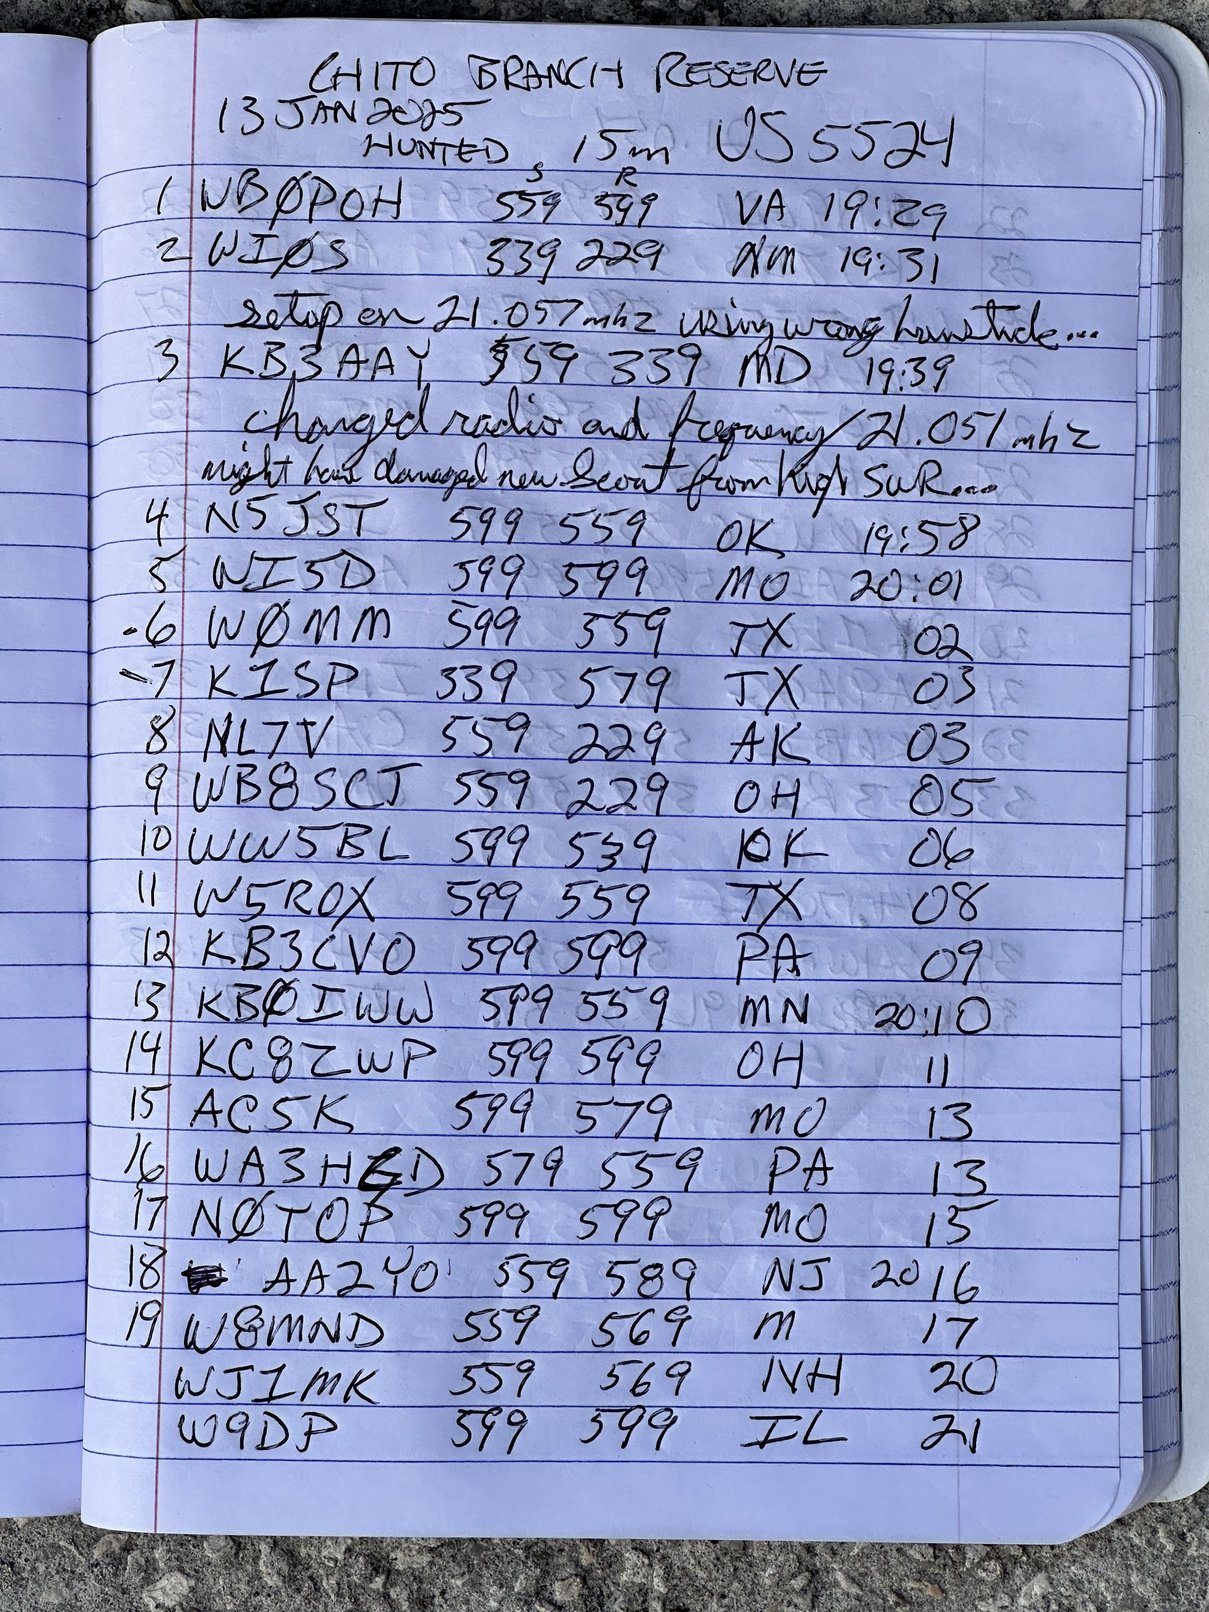 CHITO BRANCH RESERVE
13 JAN 2025
HUNTED 15m US 5524
S R
1 WBØPOH 559 599 VA 19:29
2 WIØS 339 229 NM 19:31
setup on 21.057 mhz using wrong hamstick...
3 KB3AAY 559 339 MD 19:39
changed radio and frequency/21.051 mhz
might have damaged new Scout from high SWR...
4 N5JST 599 559 OK 19:58
5 WI5D 599 599 MO 20:01
6 WØMM 599 559 TX 02
7 K1SP 339 579 TX 03
8 NL7V 559 229 AK 03
9 WB8SCJ 559 229 OH 05
10 WW5BL 599 539 OK 06
11 W5ROX 599 559 TX 08
12 KB3CVO 599 599 PA 09
13 KBØIWW 599 559 MN 20:10
14 KC8ZWP 599 599 OH 11
15 AC5K 599 579 MO 13
16 WA3HD 579 559 PA 13
17 NØTOP 599 599 MO 15
18 AA2YO 559 589 NJ 20 16
19 W8MND 559 569 M 17
WJ1MK 559 569 NH 20
W9DP 599 599 IL 21